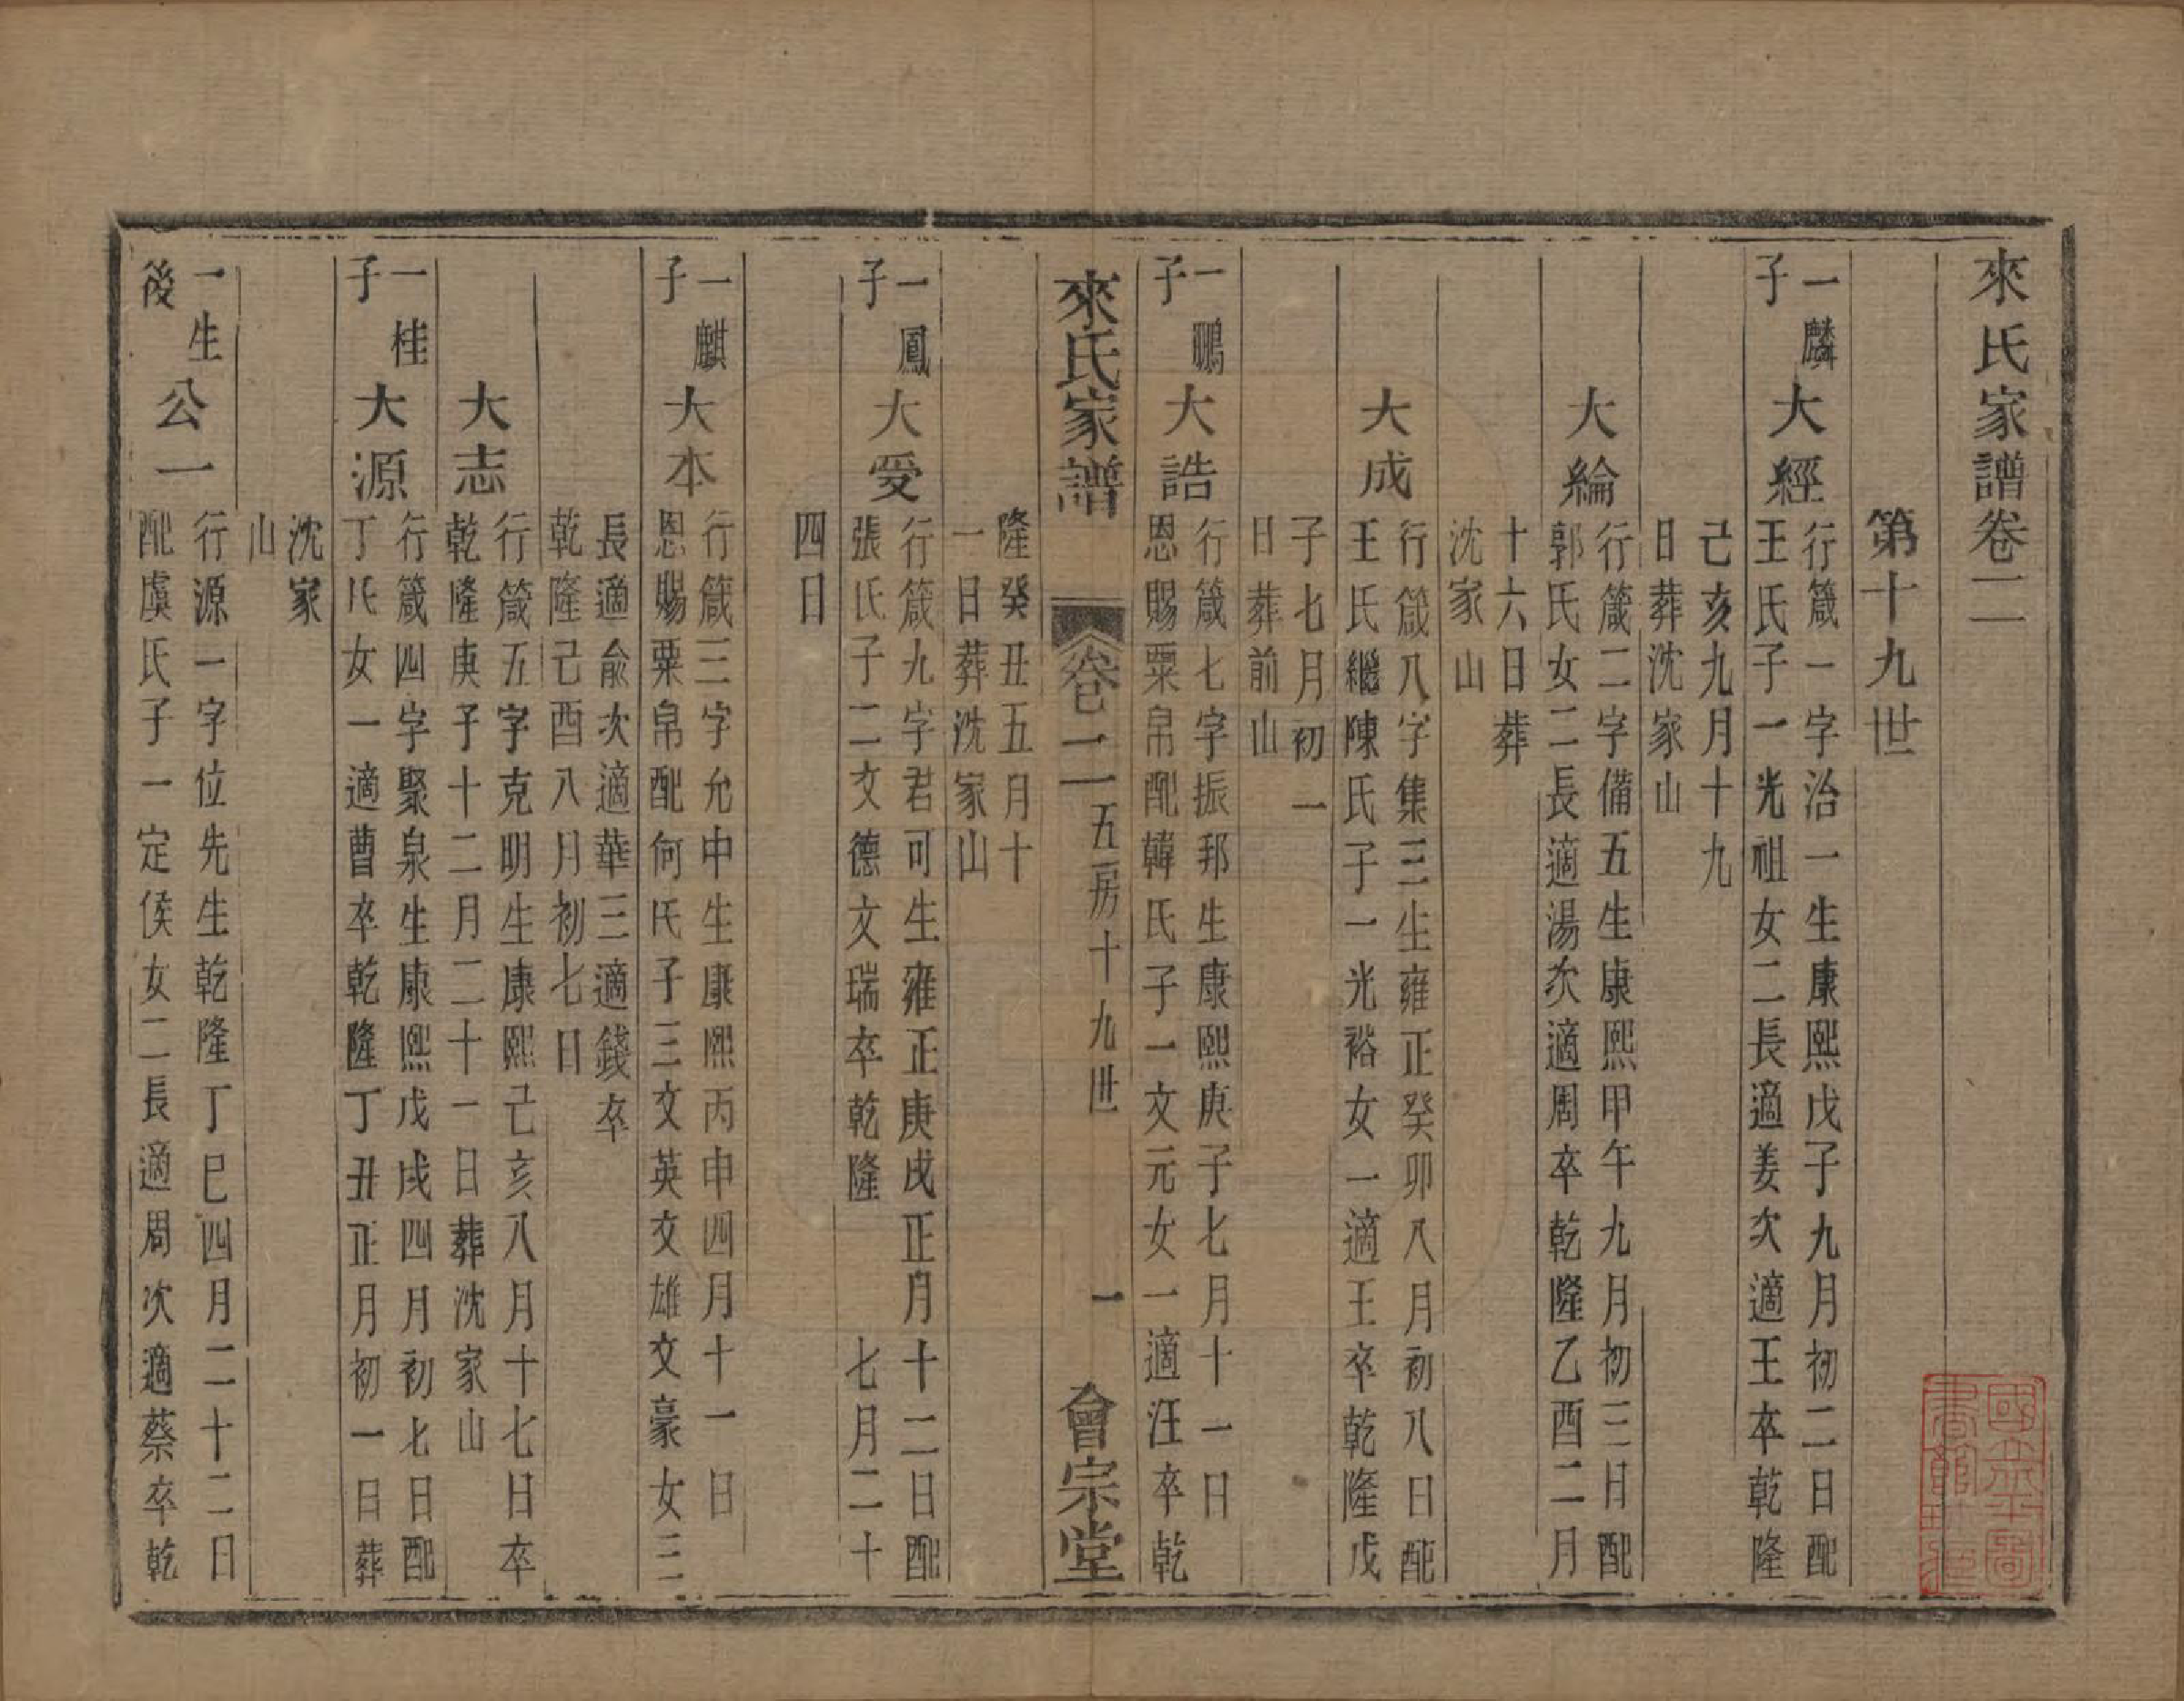 來氏家譜卷二
第十九世
一麟子
大經
行箴一字治一生康熙戊子九月初二日配
王氏子一光祖女二長適姜次適王卒乾隆
己亥九月十九
日葬沈家山
大綸
行箴二字備五生康熙甲午九月初三日配
郭氏女二長適湯次適周卒乾隆乙酉二月
十六日葬
沈家山
大成
行箴八字集三生雍正癸卯八月初八日配
王氏繼陳氏子一光裕女一適王卒乾隆戊
子七月初一
日葬前山
一鵬子
大誥
行箴七字振邦生康熙庚子七月十一日
恩賜粟帛配韓氏子一文元女一適汪卒乾
來氏家譜
卷二
五房十九世
一
會宗堂
隆癸丑五月十
一日葬沈家山
一鳳子
大受
行箴九字君可生雍正庚戌正月十二日配
張氏子二文德文瑞卒乾隆 七月二十
四日
一麒子
大本
行箴三字允中生康熙丙申四月十一日
恩賜粟帛配何氏子三文英文雄文豪女三
長適俞次適華三適錢卒
乾隆己酉八月初七日
大志
行箴五字克明生康熙己亥八月十七日卒
乾隆庚子十二月二十一日葬沈家山
一桂子
大源
行箴四字聚泉生康熙戊戌四月初七日配
丁氏女一適曹卒乾隆丁丑正月初一日葬
沈家
山
一生後
公一
行源一字位先生乾隆丁巳四月二十二日
配虞氏子一定侯女二長適周次適蔡卒乾
國立北平圖書館收藏